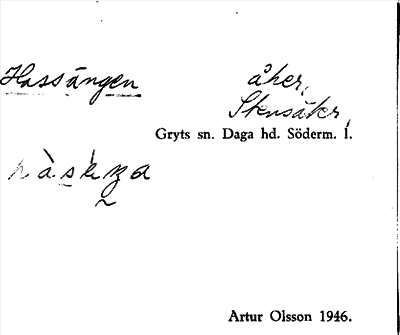 Hassängen åker,
Stensäter,
Gryts sn. Daga hd. Söderm. l.
Artur Olsson 1946.